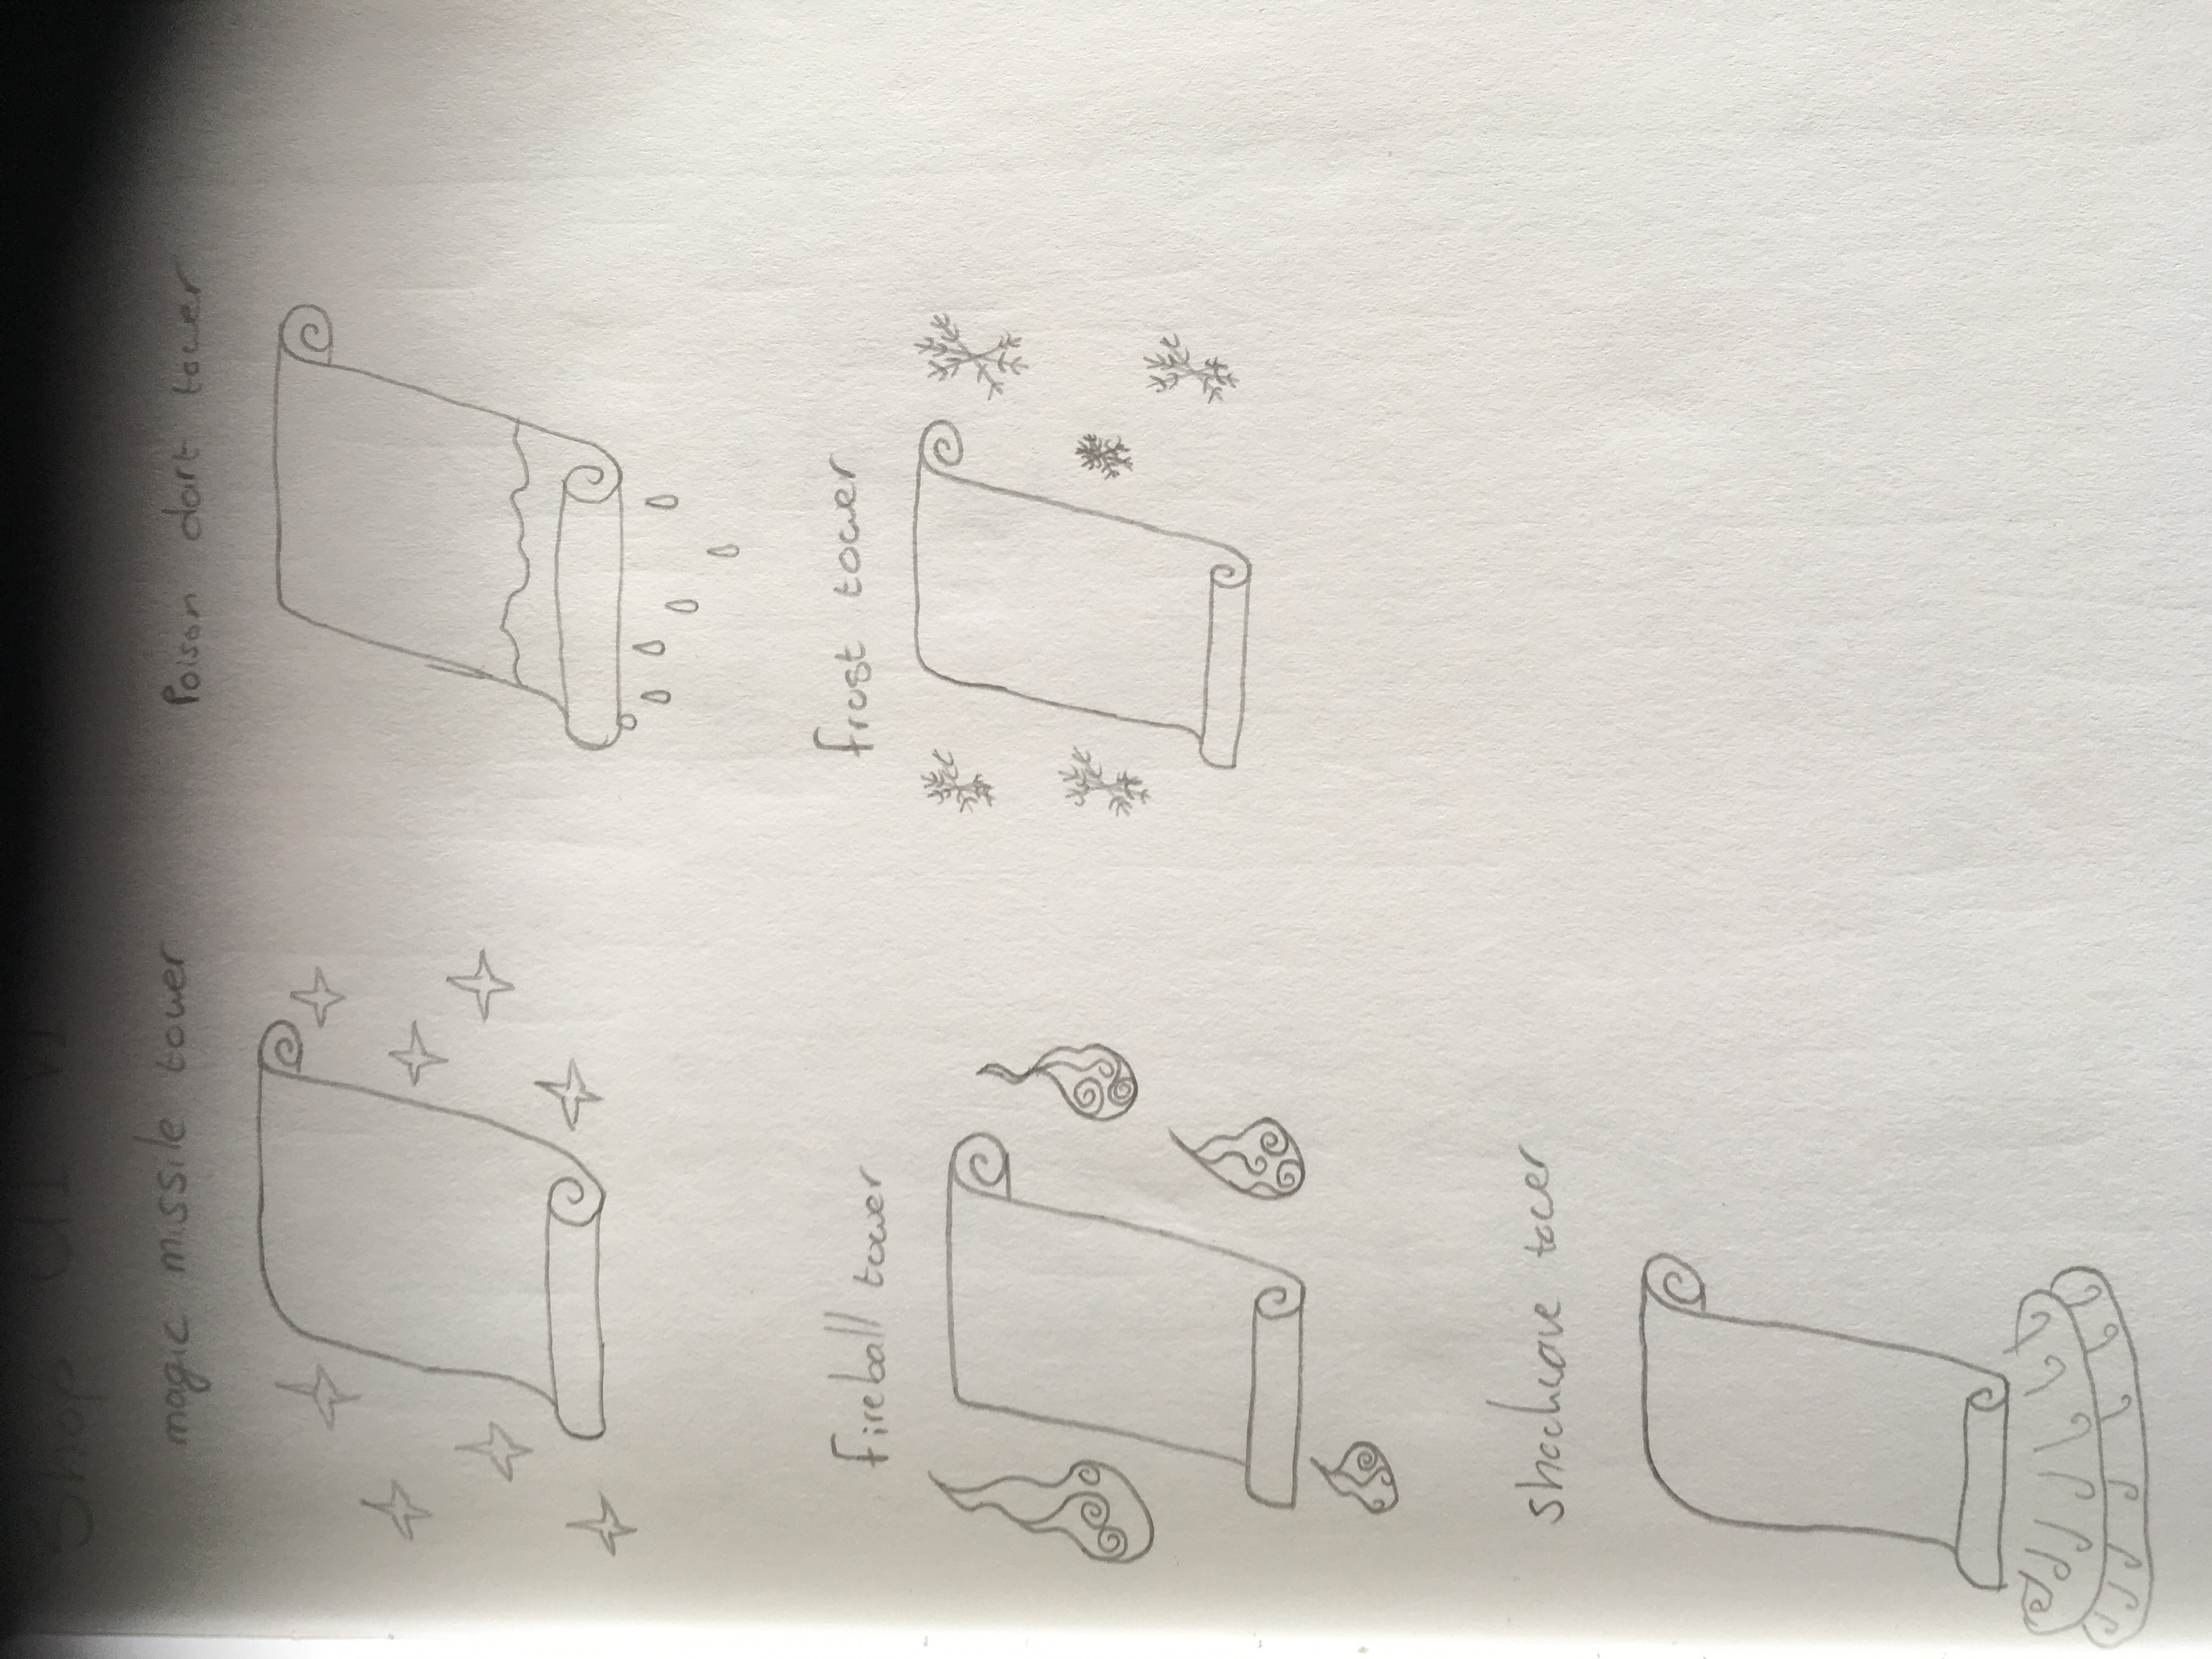 Shop UI V1
magic missile tower
Poison dart tower
fireball tower
frost tower
shockwave tower